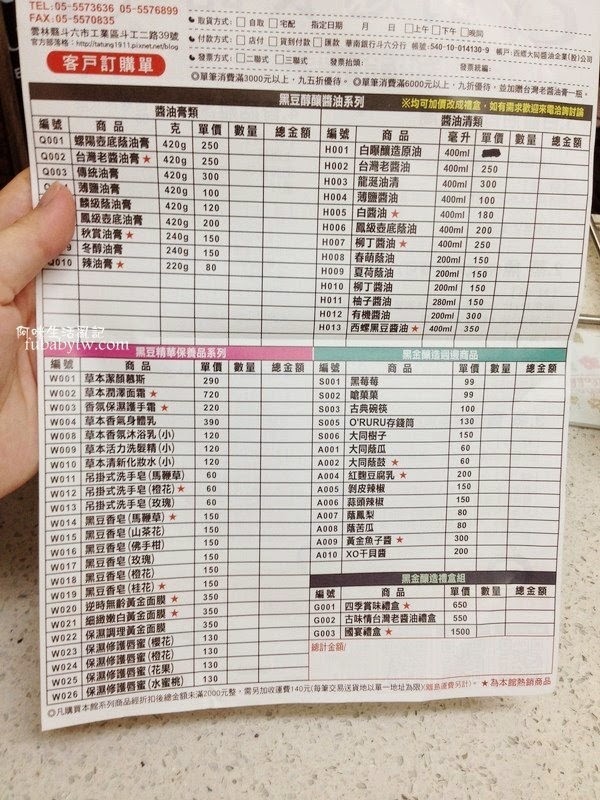 TEL:05-5573636 05-5576899
FAX:05-5570835
雲林縣斗六市工業區斗工二路39號
官方部落格:http://tatung1911.pixnet.net/blog
客戶訂購單
取貨方式: 自取 宅配 指定日期 月 日 上午 下午 晚間
付款方式: 店付 貨到付款 匯款 華南銀行斗六分行 帳號:540-10-014130-9 帳戶:西螺大同醬油企業(股)公司
發票方式: 二聯式 三聯式 發票抬頭: 統編:
◎單筆消費滿3000元以上,九五折優待。 ◎單筆消費滿6000元以上,九折優待,並加贈台灣老醬油膏一瓶。
黑豆醇釀醬油系列
※均可加價改成禮盒,如有需求歡迎來電洽詢討論
醬油膏類
編號 商品 克 單價 數量 總金額
Q001 螺陽壺底蔭油膏 420g 250
Q002 台灣老醬油膏★ 420g 250
Q003 傳統油膏 420g 300
薄鹽油膏 420g 100
麟級蔭油膏 420g 120
鳳級壺底油膏 420g 200
秋賞油膏★ 240g 150
冬醇油膏 240g 150
Q010 辣油膏★ 220g 80
醬油清類
編號 商品 毫升 單價 數量 總金額
H001 白曝釀造原油 400ml
H002 台灣老醬油 400ml 250
H003 龍涎油清 400ml 300
H004 薄鹽醬油 400ml 100
H005 白醬油★ 400ml 180
H006 鳳級壺底蔭油 400ml 200
H007 柳丁醬油★ 400ml 250
H008 春萌蔭油 200ml 150
H009 夏荷蔭油 200ml 150
H010 柳丁醬油 200ml 150
H011 柚子醬油 280ml 150
H012 有機醬油 200ml 300
H013 西螺黑豆醬油★ 400ml 350
阿咩生活亂記
fubabytw.com
黑豆精華保養品系列
編號 商品 單價 數量 總金額
W001 草本潔顏慕斯 290
W002 草本潤澤面霜★ 720
W003 香氛保濕護手霜★ 220
W004 草本香氛身體乳 390
W008 草本香氛沐浴乳(小) 120
W009 草本活力洗髮精(小) 120
W010 草本清新化妝水(小) 120
W011 吊掛式洗手皂(馬鞭草) 60
W012 吊掛式洗手皂(橙花)★ 60
W013 吊掛式洗手皂(玫瑰) 60
W014 黑豆香皂(馬鞭草)★ 150
W015 黑豆香皂(山茶花) 150
W016 黑豆香皂(佛手柑) 150
W017 黑豆香皂(玫瑰) 150
W018 黑豆香皂(橙花) 150
W019 黑豆香皂(桂花)★ 150
W020 逆時無齡黃金面膜★ 350
W021 細緻嫩白黃金面膜★ 350
W022 保濕調理黃金面膜 350
W023 保濕修護唇蜜(櫻花) 130
W024 保濕修護唇蜜(橙花) 130
W025 保濕修護唇蜜(花果) 130
W026 保濕修護唇蜜(水蜜桃) 130
黑金釀造週邊商品
編號 商品 單價 數量 總金額
S001 黑莓莓 99
S002 嗆菓菓 99
S003 古典碗筷 100
S005 O'RURU存錢筒 130
S006 大同樹子 150
A001 大同蔭瓜 60
A002 大同蔭鼓★ 60
A004 紅麴豆腐乳★ 200
A005 剝皮辣椒 150
A006 蒜頭辣椒 150
A007 蔭鳳梨 80
A008 蔭苦瓜 80
A009 黃金魚子醬★ 300
A010 XO干貝醬 200
黑金釀造禮盒組
編號 商品 單價 數量 總金額
G001 四季賞味禮盒★ 650
G002 古味情台灣老醬油禮盒 550
G003 國宴禮盒★ 1500
總計金額/
◎凡購買本館系列商品經折扣後總金額未滿2000元整,需另加收運費140元(每筆交易送貨地以單一地址為限)(離島運費另計)。 ★為本館熱銷商品